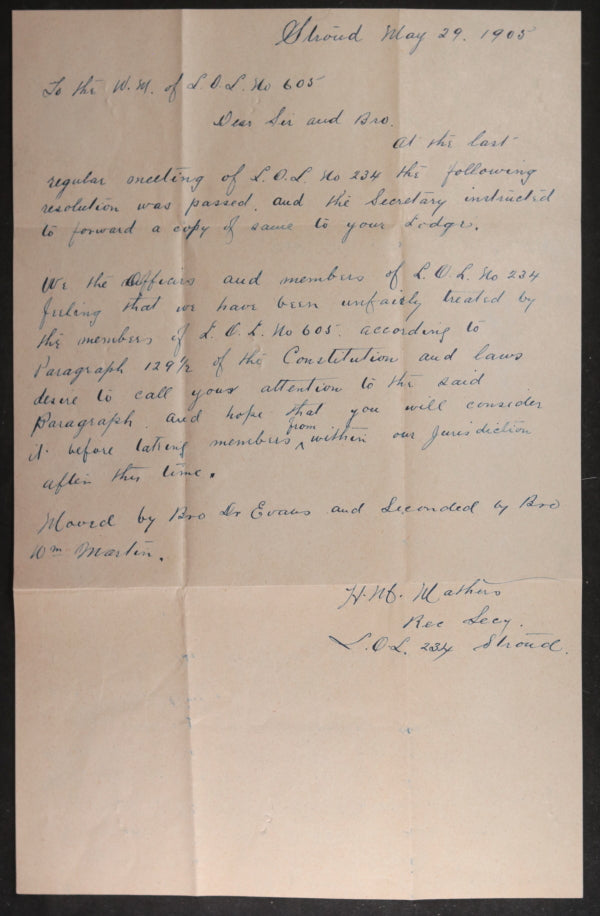 Stroud May 29. 1905
To the W. M. of L. O. L. No 605
Dear Sir and Bro.
At the last
regular meeting of L. O. L. No 234 the following
resolution was passed. and the Secretary instructed
to forward a copy of same to your Lodge.
We the Officers and members of L. O. L. No 234
feeling that we have been unfairly treated by
the members of L. O. L. No 605. according to
Paragraph 129½ of the Constitution and laws
desire to call your attention to the said
Paragraph. and hope that you will consider
it before taking members from within our jurisdiction
after this time.
Moved by Bro Dr Evans and Seconded by Bro
Wm Martin.
H. M. Mathers
Rec Secy.
L. O. L. 234 Stroud.